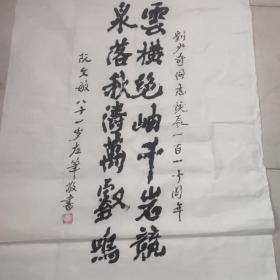 刘少奇同志诞辰一百一十周年
雲横绝岫千岩競
泉落秋濤萬壑鳴
阮文敏八十一岁左筆敬書